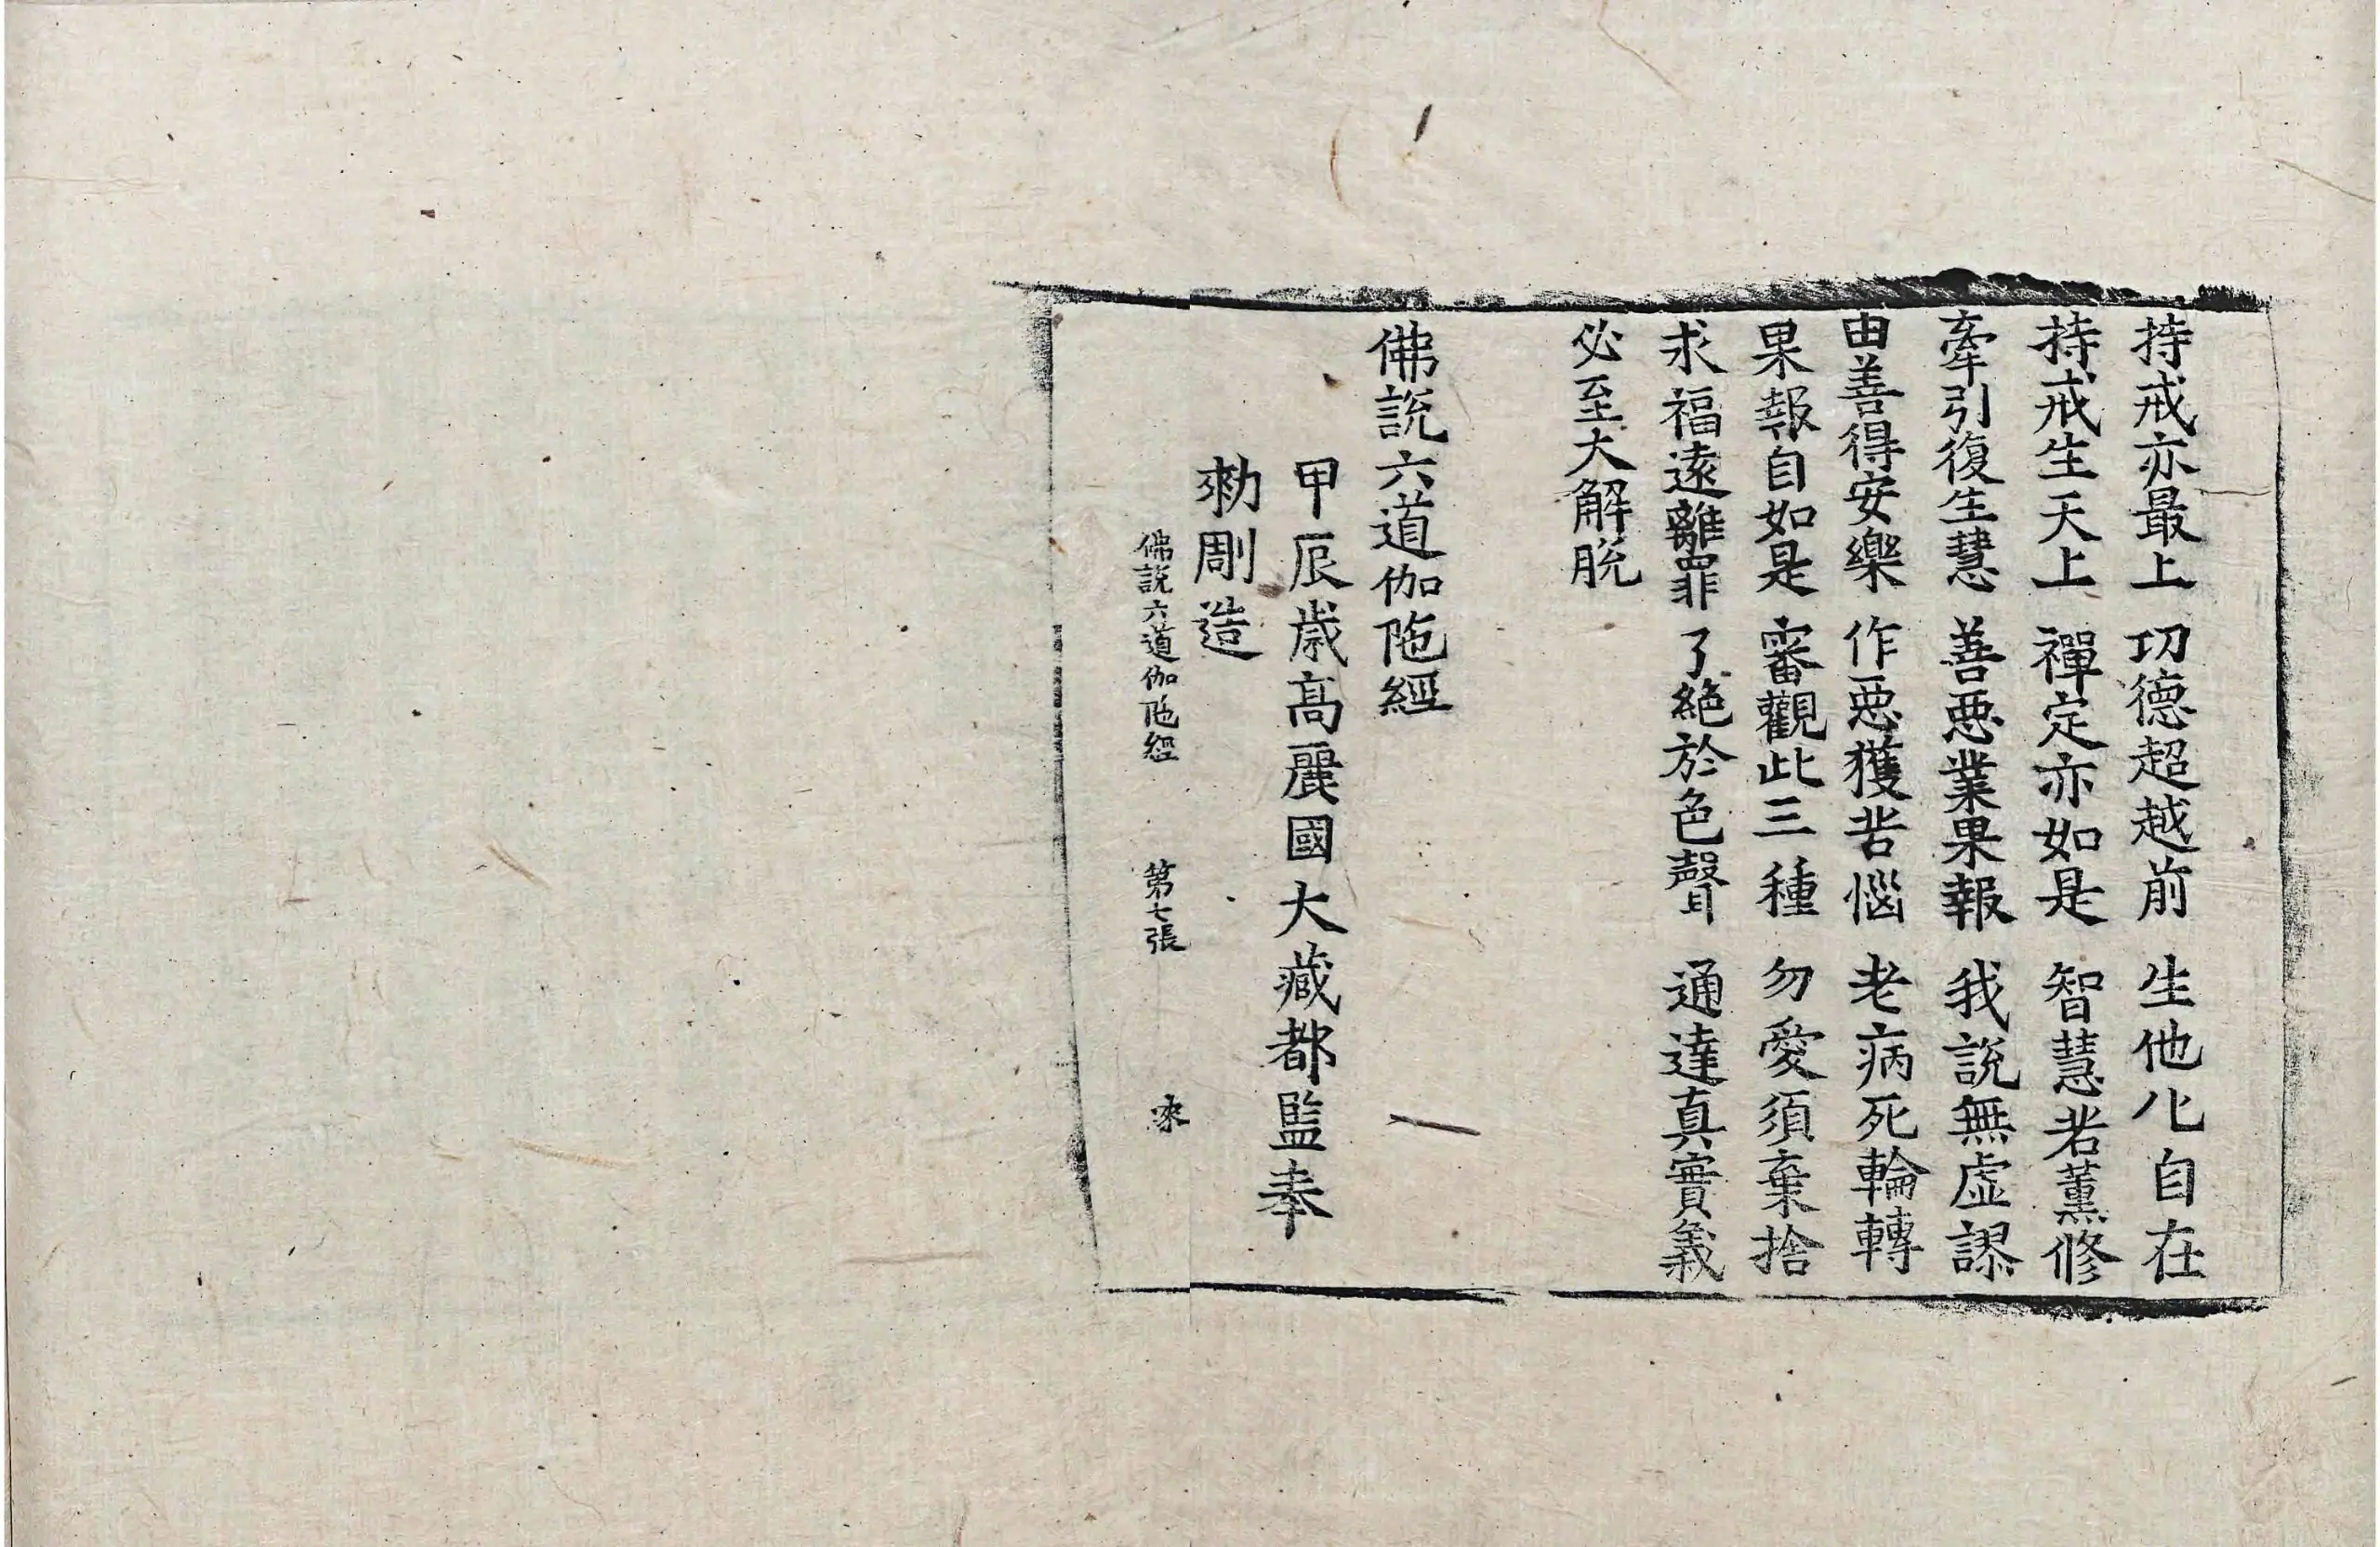 持戒亦最上 功德超越前 生他化自在
持戒生天上 禪定亦如是 智慧者薰修
牽引復生慧 善惡業果報 我說無虛謬
由善得安樂 作惡獲苦惱 老病死輪轉
果報自如是 審觀此三種 勿愛須棄捨
求福遠離罪 了絕於色聲 通達真實義
必至大解脫
佛說六道伽陁經
甲辰歲高麗國大藏都監奉
勅彫造
佛說六道伽陁經 第七張